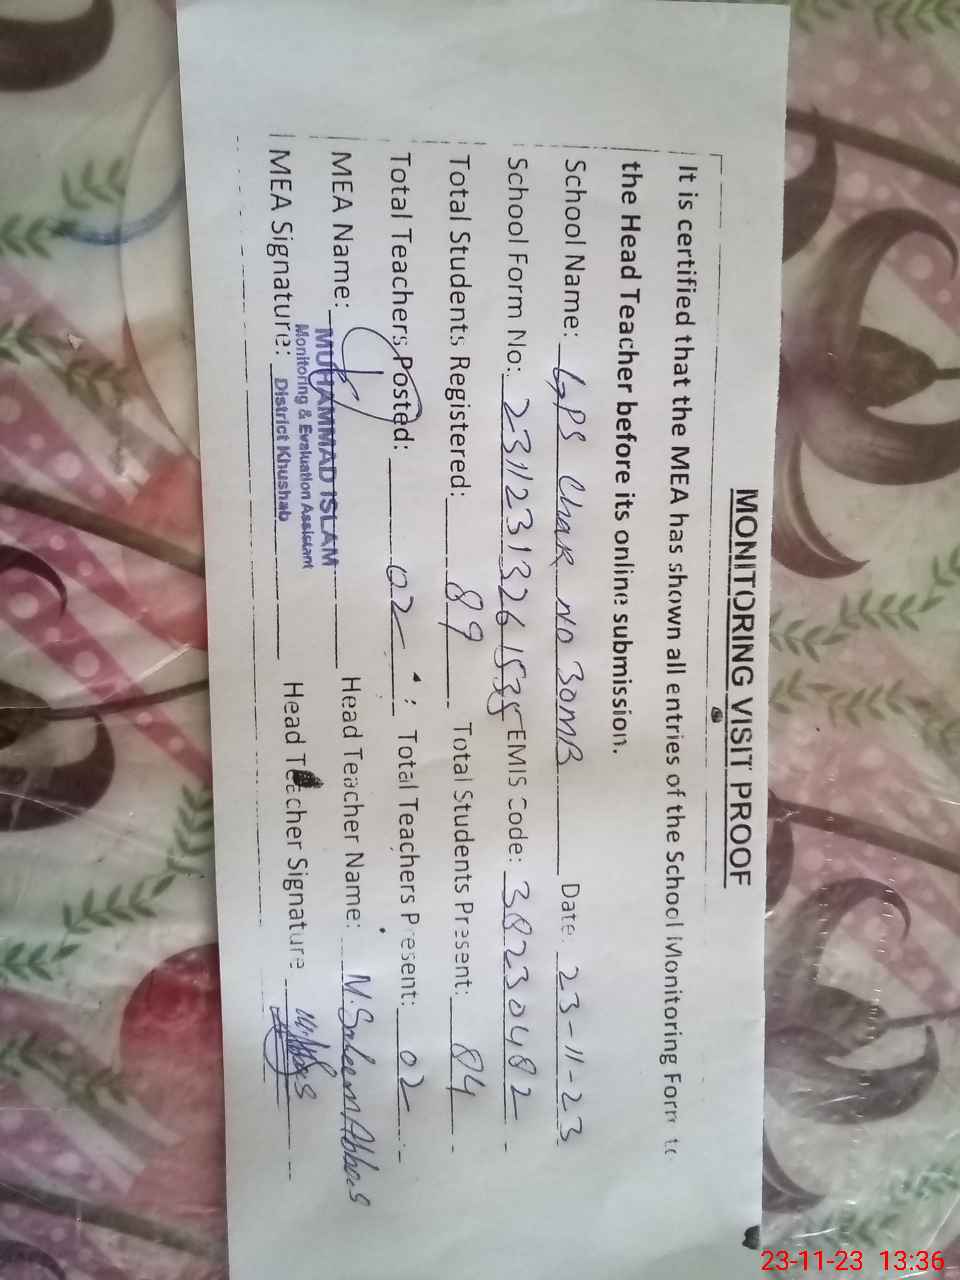 MONITORING VISIT PROOF
It is certified that the MEA has shown all entries of the School Monitoring Form to
the Head Teacher before its online submission.
School Name: GPS Chak No 30MB Date: 23-11-23
School Form No: 23112313261535 EMIS Code: 38230482
Total Students Registered: 89 Total Students Present: 84
Total Teachers Posted: 02 Total Teachers Present: 02
MEA Name: MUHAMMAD ISLAM Head Teacher Name: M. Saleem Abbas
Monitoring & Evaluation Assistant
MEA Signature: District Khushab Head Teacher Signature
23-11-23 13:36